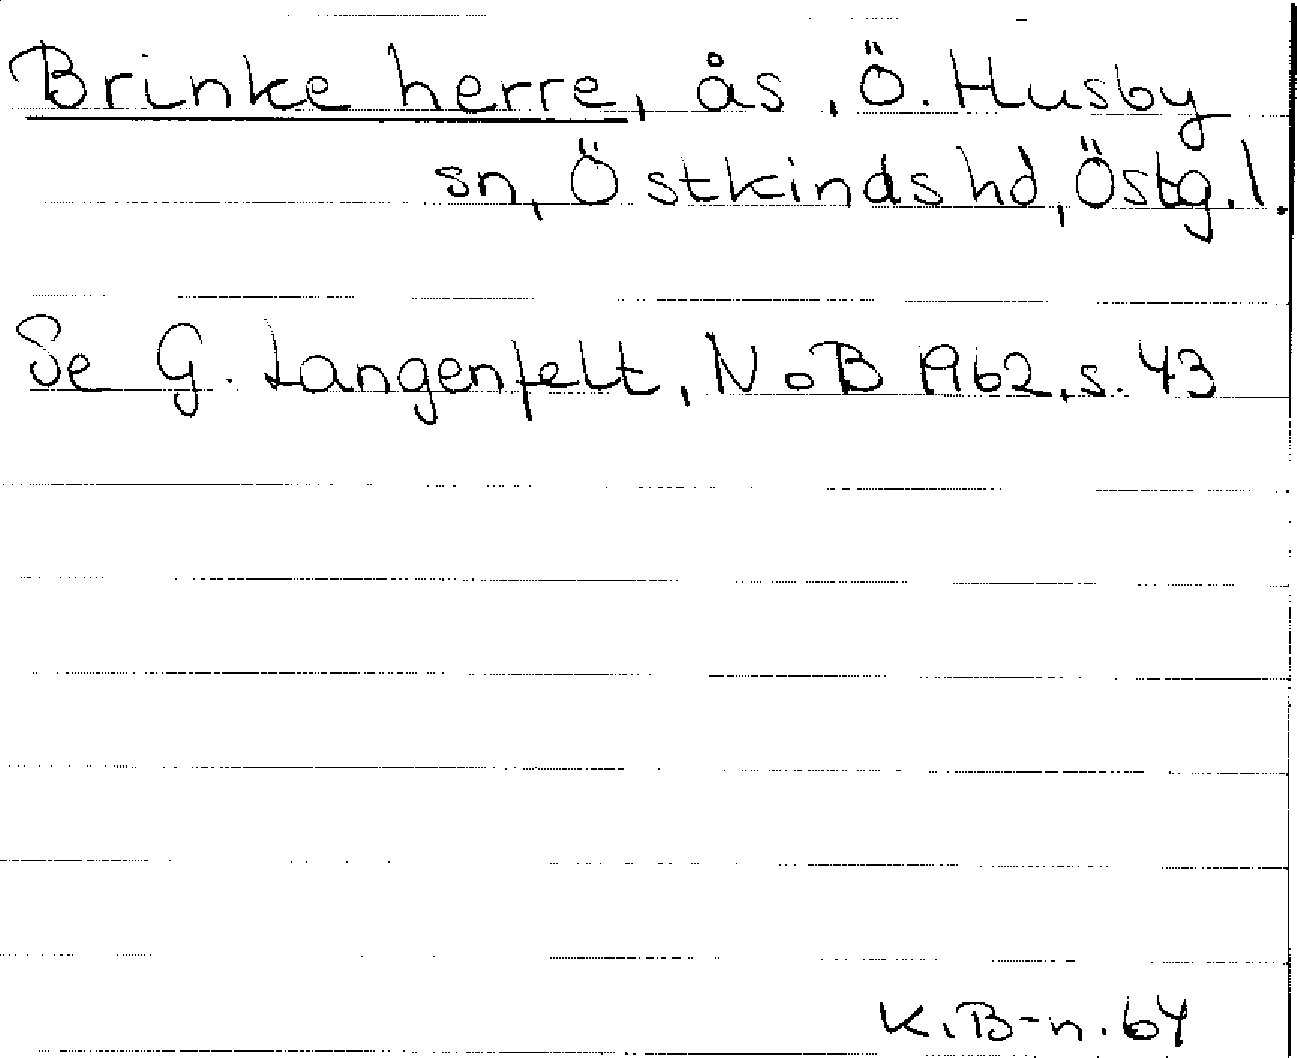 Brinke herre, ås, Ö. Husby
sn, Östkinds hd, Östg. l.
Se G. Langenfelt, NoB 1962, s. 43
K. B-n. 64